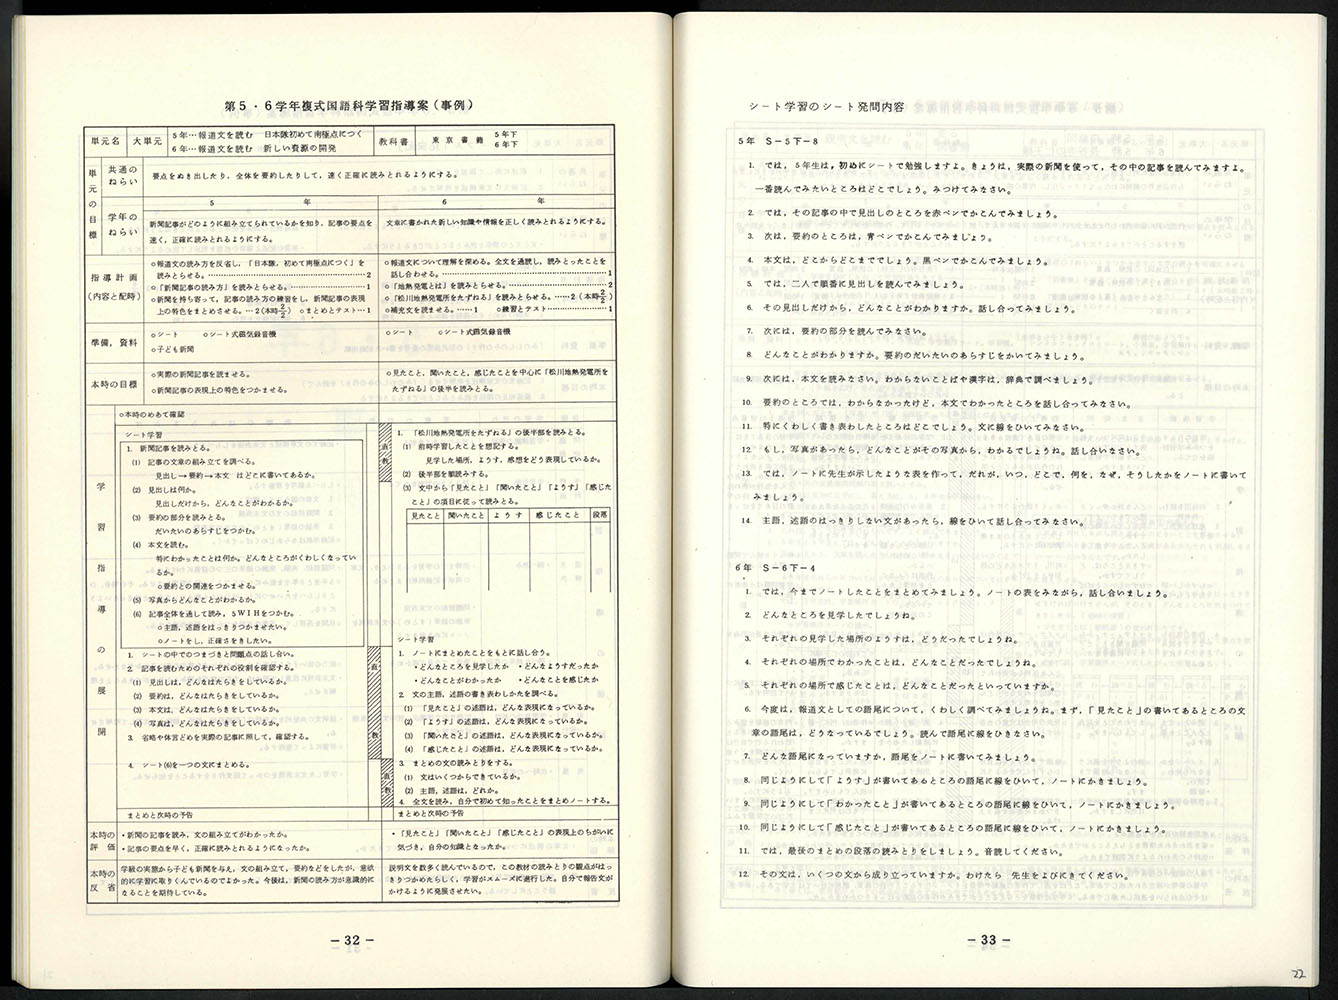 第5・6学年複式国語科学習指導案(事例)
単元名 大単元 5年…報道文を読む 日本隊初めて南極点につく
6年…報道文を読む 新しい資源の開発
教科書 東京書籍 5年下
6年下
単元の目標
共通のねらい 要点をぬき出したり、全体を要約したりして、速く正確に読みとれるようにする。
5 年 6 年
学年のねらい
新聞記事がどのように組み立てられているかを知り、記事の要点を
速く、正確に読みとれるようにする。
文章に書かれた新しい知識や情報を正しく読みとれるようにする。
指導計画
(内容と配時)
○報道文の読み方を反省し、「日本隊、初めて南極点につく」を
読みとらせる。…………………2
○「新聞記事の読み方」を読みとらせる。…………1
○新聞を持ち寄って、記事の読み方の練習をし、新聞記事の表現
上の特色をまとめさせる。…2(本時2/2) ○まとめとテスト…1
○報道文について理解を深める。全文を通読し、読みとったことを
話し合わせる。…………………1
○「地熱発電とは」を読みとらせる。…………2
○「松川地熱発電所をたずねる」を読みとらせる。……2(本時2/2)
○補充文を読ませる。……1 ○練習とテスト…………1
準備,資料
○シート ○シート式磁気録音機
○子ども新聞
○シート ○シート式磁気録音機
本時の目標
○実際の新聞記事を読ませる。
○新聞記事の表現上の特色をつかませる。
○見たこと,聞いたこと,感じたことを中心に「松川地熱発電所を
たずねる」の後半を読みとる。
学習指導の展開
○本時のめあて確認
シート学習
1. 新聞記事を読みとる。
(1) 記事の文章の組み立てを調べる。
見出し→要約→本文 はどこに書いてあるか。
(2) 見出しは何か。
見出しだけから、どんなことがわかるか。
(3) 要約の部分を読みとる。
だいたいのあらすじをつかむ。
(4) 本文を読む。
特にわかったことは何か。どんなところがくわしくなってい
るか。
○要約との関連をつかませる。
(5) 写真からどんなことがわかるか。
(6) 記事全体を通して読み、5W1Hをつかむ。
○主語、述語をはっきりつかませたい。
○ノートをし、正確さをきしたい。
1. シートの中でのつまづきと問題点の話し合い。
2. 記事を読むためのそれぞれの役割を確認する。
(1) 見出しは、どんなはたらきをしているか。
(2) 要約は、どんなはたらきをしているか。
(3) 本文は、どんなはたらきをしているか。
(4) 写真は、どんなはたらきをしているか。
3. 省略や体言どめを実際の記事に照して、確認する。
4. シート(6)を一つの文にまとめる。
まとめと次時の予告
直
教
直
教
直
教
1. 「松川地熱発電所をたずねる」の後半部を読みとる。
(1) 前時学習したことを想記する。
見学した場所、ようす、感想をどう表現しているか。
(2) 後半部を黙読する。
(3) 文中から「見たこと」「聞いたこと」「ようす」「感じた
こと」の項目に従って読みとる。
見たこと 聞いたこと ようす 感じたこと 段落
シート学習
1. ノートにまとめたことをもとに話し合う。
・どんなところを見学したか ・どんなようすだったか
・どんなことがわかったか ・どんなことを感じたか
2. 文の主語、述語の書き表わしかたを調べる。
(1) 「見たこと」の述語は、どんな表現になっているか。
(2) 「ようす」の述語は、どんな表現になっているか。
(3) 「聞いたこと」の述語は、どんな表現になっているか。
(4) 「感じたこと」の述語は、どんな表現になっているか。
3. まとめの文の読みとりをする。
(1) 文はいくつからできているか。
(2) 主語、述語は、どれか。
4. 全文を読み、自分で初めて知ったことをまとめノートする。
まとめと次時の予告
本時の評価
・新聞の記事を読み、文の組み立てがわかったか。
・記事の要点を早く、正確に読みとれるようになったか。
・「見たこと」「聞いたこと」「感じたこと」の表現上のちがいに
気づき、自分の知識となったか。
本時の反省
学級の実態から子ども新聞を与え、文の組み立て、要約などをしたが、意欲
的に学習に取りくんでいるのでよかった。今後は、新聞の読み方が意識的に
なることを期待している。
説明文を数多く読んでいるので、この教材の読みとりの観点がはっ
きりつかめたらしく、学習がスムーズに進行した。自分で報告文が
かけるように発展させたい。
— 32 —
シート学習のシート発問内容
5年 S-5下-8
1. では、5年生は、初めにシートで勉強しますよ。きょうは、実際の新聞を使って、その中の記事を読んでみますよ。
一番読んでみたいところはどこでしょう。みつけてみなさい。
2. では、その記事の中で見出しのところを赤ペンでかこんでみましょう。
3. 次は、要約のところは、青ペンでかこんでみましょう。
4. 本文は、どこからどこまででしょう。黒ペンでかこんでみましょう。
5. では、二人で順番に見出しを読んでみましょう。
6. その見出しだけから、どんなことがわかりますか。話し合ってみましょう。
7. 次には、要約の部分を読んでみなさい。
8. どんなことがわかりますか。要約のだいたいのあらすじをかいてみましょう。
9. 次には、本文を読みなさい。わからないことばや漢字は、辞典で調べましょう。
10. 要約のところでは、わからなかったけど、本文でわかったところを話し合ってみなさい。
11. 特にくわしく書き表わしたところはどこでしょう。文に線をひいてみなさい。
12. もし、写真があったら、どんなことがその写真から、わかるでしょうね。話し合いなさい。
13. では、ノートに先生が示したような表を作って、だれが、いつ、どこで、何を、なぜ、そうしたかをノートに書いて
みましょう。
14. 主語、述語のはっきりしない文があったら、線をひいて話し合ってみなさい。
6年 S-6下-4
1. では、今までノートしたことをまとめてみましょう。ノートの表をみながら、話し合いましょう。
2. どんなところを見学したでしょうね。
3. それぞれの見学した場所のようすは、どうだったでしょうね。
4. それぞれの場所でわかったことは、どんなことだったでしょうね。
5. それぞれの場所で感じたことは、どんなことだったといっていますか。
6. 今度は、報道文としての語尾について、くわしく調べてみましょうね。まず、「見たこと」の書いてあるところの文
章の語尾は、どうなっているでしょう。読んで語尾に線をひきなさい。
7. どんな語尾になっていますか、語尾をノートに書いてみましょう。
8. 同じようにして「ようす」が書いてあるところの語尾に線をひいて、ノートにかきましょう。
9. 同じようにして「わかったこと」が書いてあるところの語尾に線をひいて、ノートにかきましょう。
10. 同じようにして「感じたこと」が書いてあるところの語尾に線をひいて、ノートにかきましょう。
11. では、最後のまとめの段落の読みとりをしましょう。音読してください。
12. その文は、いくつの文から成り立っていますか。わけたら 先生をよびにきてください。
— 33 —
22